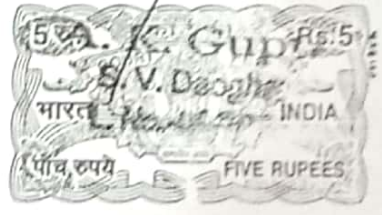 5 रु. A. K. Gupt Rs.5
S. V. Daogh
भारत INDIA
पाँच रुपये FIVE RUPEES